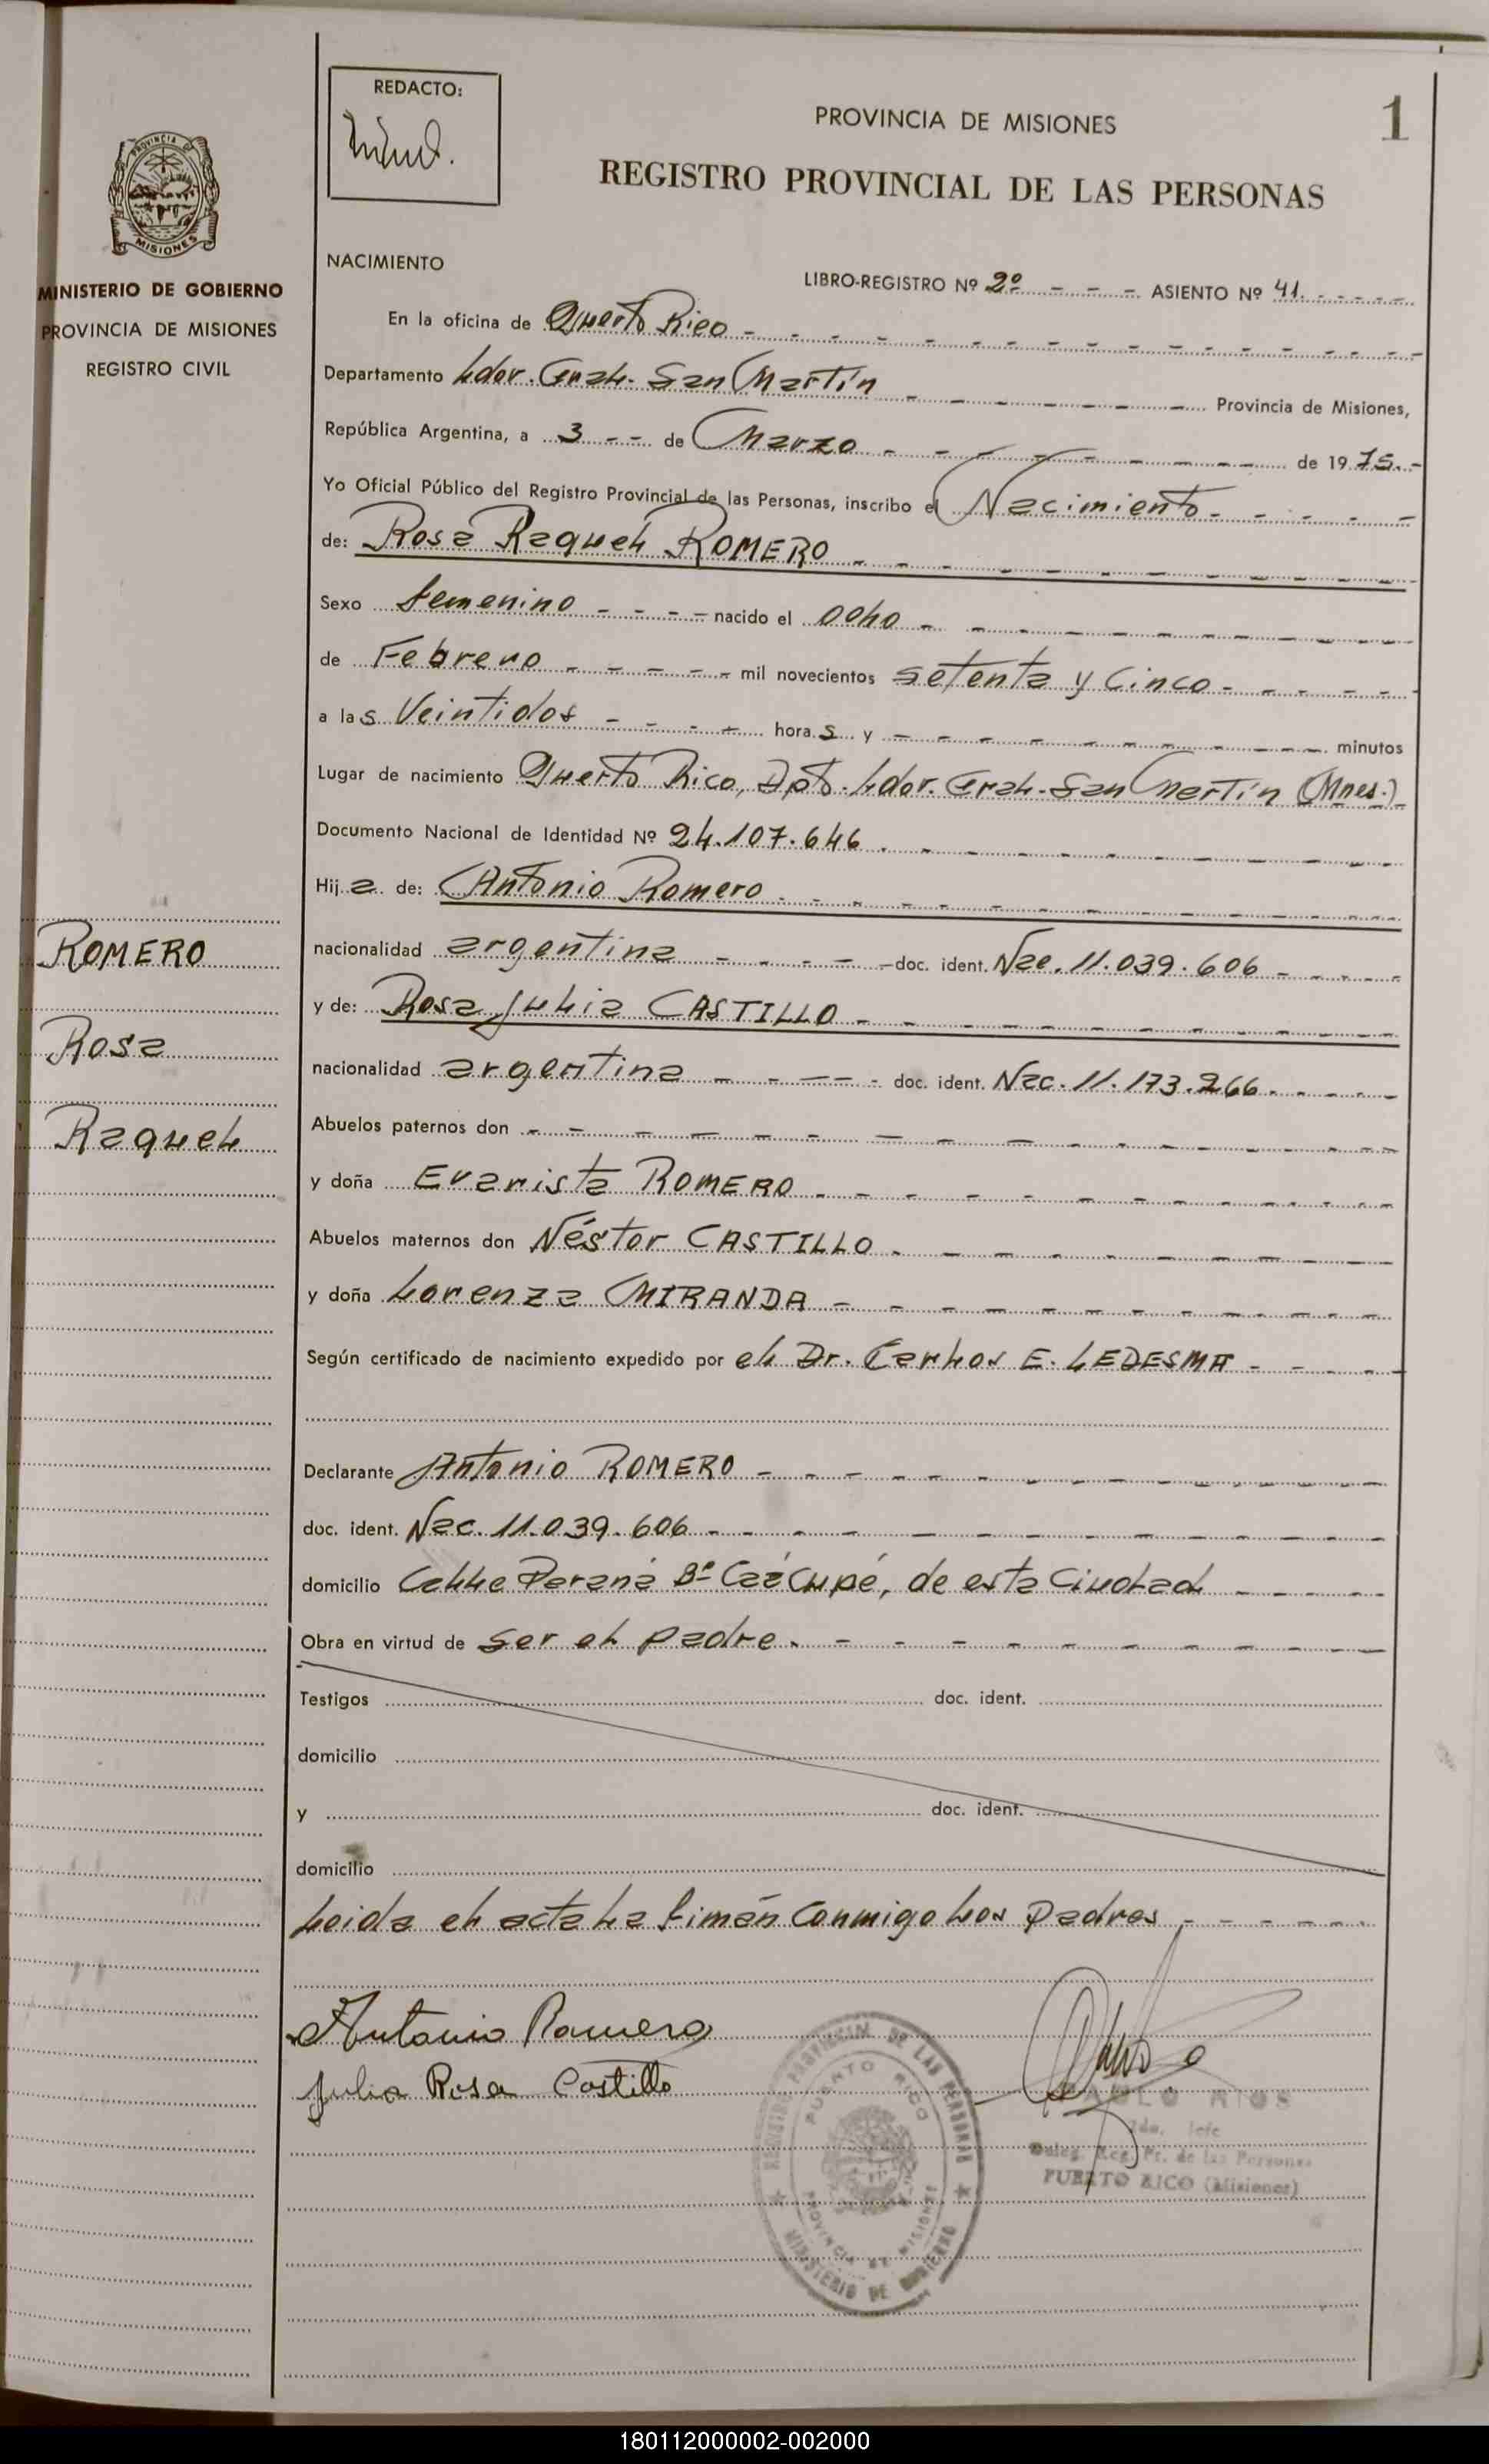 REDACTO:
PROVINCIA DE MISIONES
1
REGISTRO PROVINCIAL DE LAS PERSONAS
PROVINCIA DE
MISIONES
MINISTERIO DE GOBIERNO
PROVINCIA DE MISIONES
REGISTRO CIVIL
NACIMIENTO
LIBRO-REGISTRO Nº 2º - - - ASIENTO Nº 41
En la oficina de Puerto Rico
Departamento Ldor. Gral. San Martín Provincia de Misiones,
República Argentina, a 3 - - de Marzo de 19 75.-
Yo Oficial Público del Registro Provincial de las Personas, inscribo el Nacimiento
de: Rosa Raquel ROMERO
Sexo femenino nacido el ocho
de Febrero mil novecientos setenta y Cinco
a las Veintidos horas y minutos
Lugar de nacimiento Puerto Rico, Dpto. Ldor. Gral. San Martín (Mnes.)
Documento Nacional de Identidad Nº 24.107.646
Hija de: Antonio Romero
nacionalidad argentina doc. ident. Nac. 11.039.606
y de: Rosa Julia CASTILLO
nacionalidad argentina doc. ident. Nac. 11.173.266
Abuelos paternos don
y doña Evarista ROMERO
Abuelos maternos don Néstor CASTILLO
y doña Lorenza MIRANDA
Según certificado de nacimiento expedido por el Dr. Carlos E. LEDESMA
Declarante Antonio ROMERO
doc. ident. Nac. 11.039.606
domicilio Calle Paraná Bº Caácupé, de esta Ciudad
Obra en virtud de ser el padre.
Testigos doc. ident.
domicilio
y doc. ident.
domicilio
Leida el acta la fimán Conmigo los Padres
Antonio Romero
Julia Rosa Castillo
ROMERO
Rosa
Raquel
REGISTRO PROVINCIAL DE LAS PERSONAS
PUERTO RICO
PROVINCIA DE MISIONES
MINISTERIO DE GOBIERNO
PABLO RIOS
2do. Jefe
Deleg. Reg. Pr. de las Personas
PUERTO RICO (Misiones)
180112000002-002000